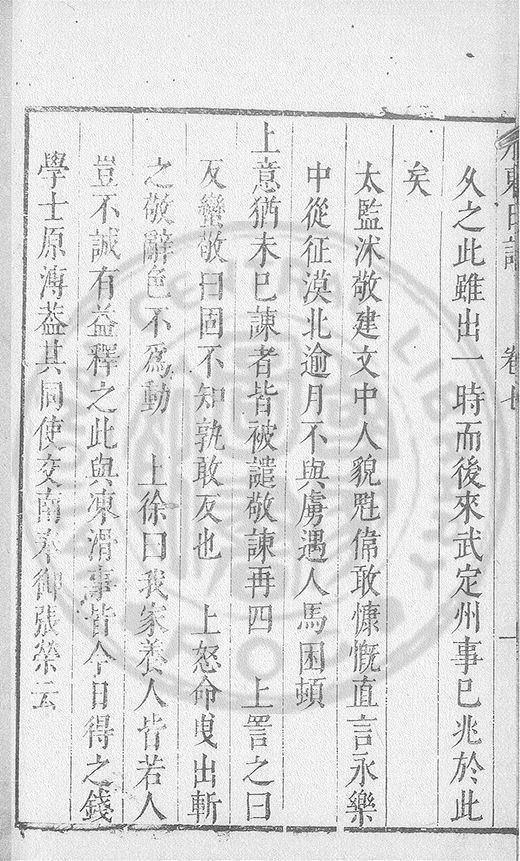 水東日記 卷七
久之此雖出一時而後來武定州事已兆於此
矣
太監沐敬建文中人貌魁偉敢慷慨直言永樂
中從征漠北逾月不與虜遇人馬困頓
上意猶未已諫者皆被譴敬諫再四 上詈之曰
反蠻敬曰固不知孰敢反也 上怒命曳出斬
之敬辭色不爲動 上徐曰我家養人皆若人
豈不誠有益釋之此與凍滑事皆今日得之錢
學士原溥葢其同使交南奉御張榮云